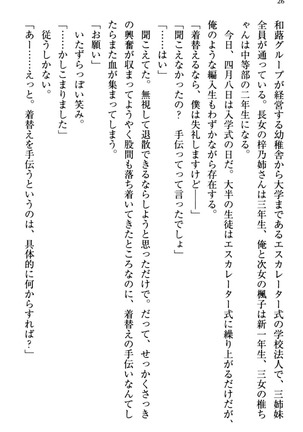 26
和蕗グループが経営する幼稚舎から大学まであるエスカレーター式の学校法人で、三姉妹
全員が通っている。長女の梓乃姉さんは三年生、俺と次女の楓子は新一年生、三女の椎ち
ゃんは中等部の二年生になる。
今日、四月八日は入学式の日だ。大半の生徒はエスカレーター式に繰り上がるだけだが、
俺のような編入生もわずかながら存在する。
「着替えるなら、僕は失礼しますけど――」
「聞こえなかったの？　手伝ってって言ったでしょ」
「……はい」
聞こえてた。無視して退散できるならしようと思っただけで。だって、せっかくさっき
の興奮が収まってようやく股間も落ち着いてきたところなのに、着替えの手伝いなんてし
たらまた血が集まってしまう。
「お願い」
いたずらっぽい笑み。
「……かしこまりました」
従うしかない。
「あー……えっと。着替えを手伝うというのは、具体的に何からすれば？」